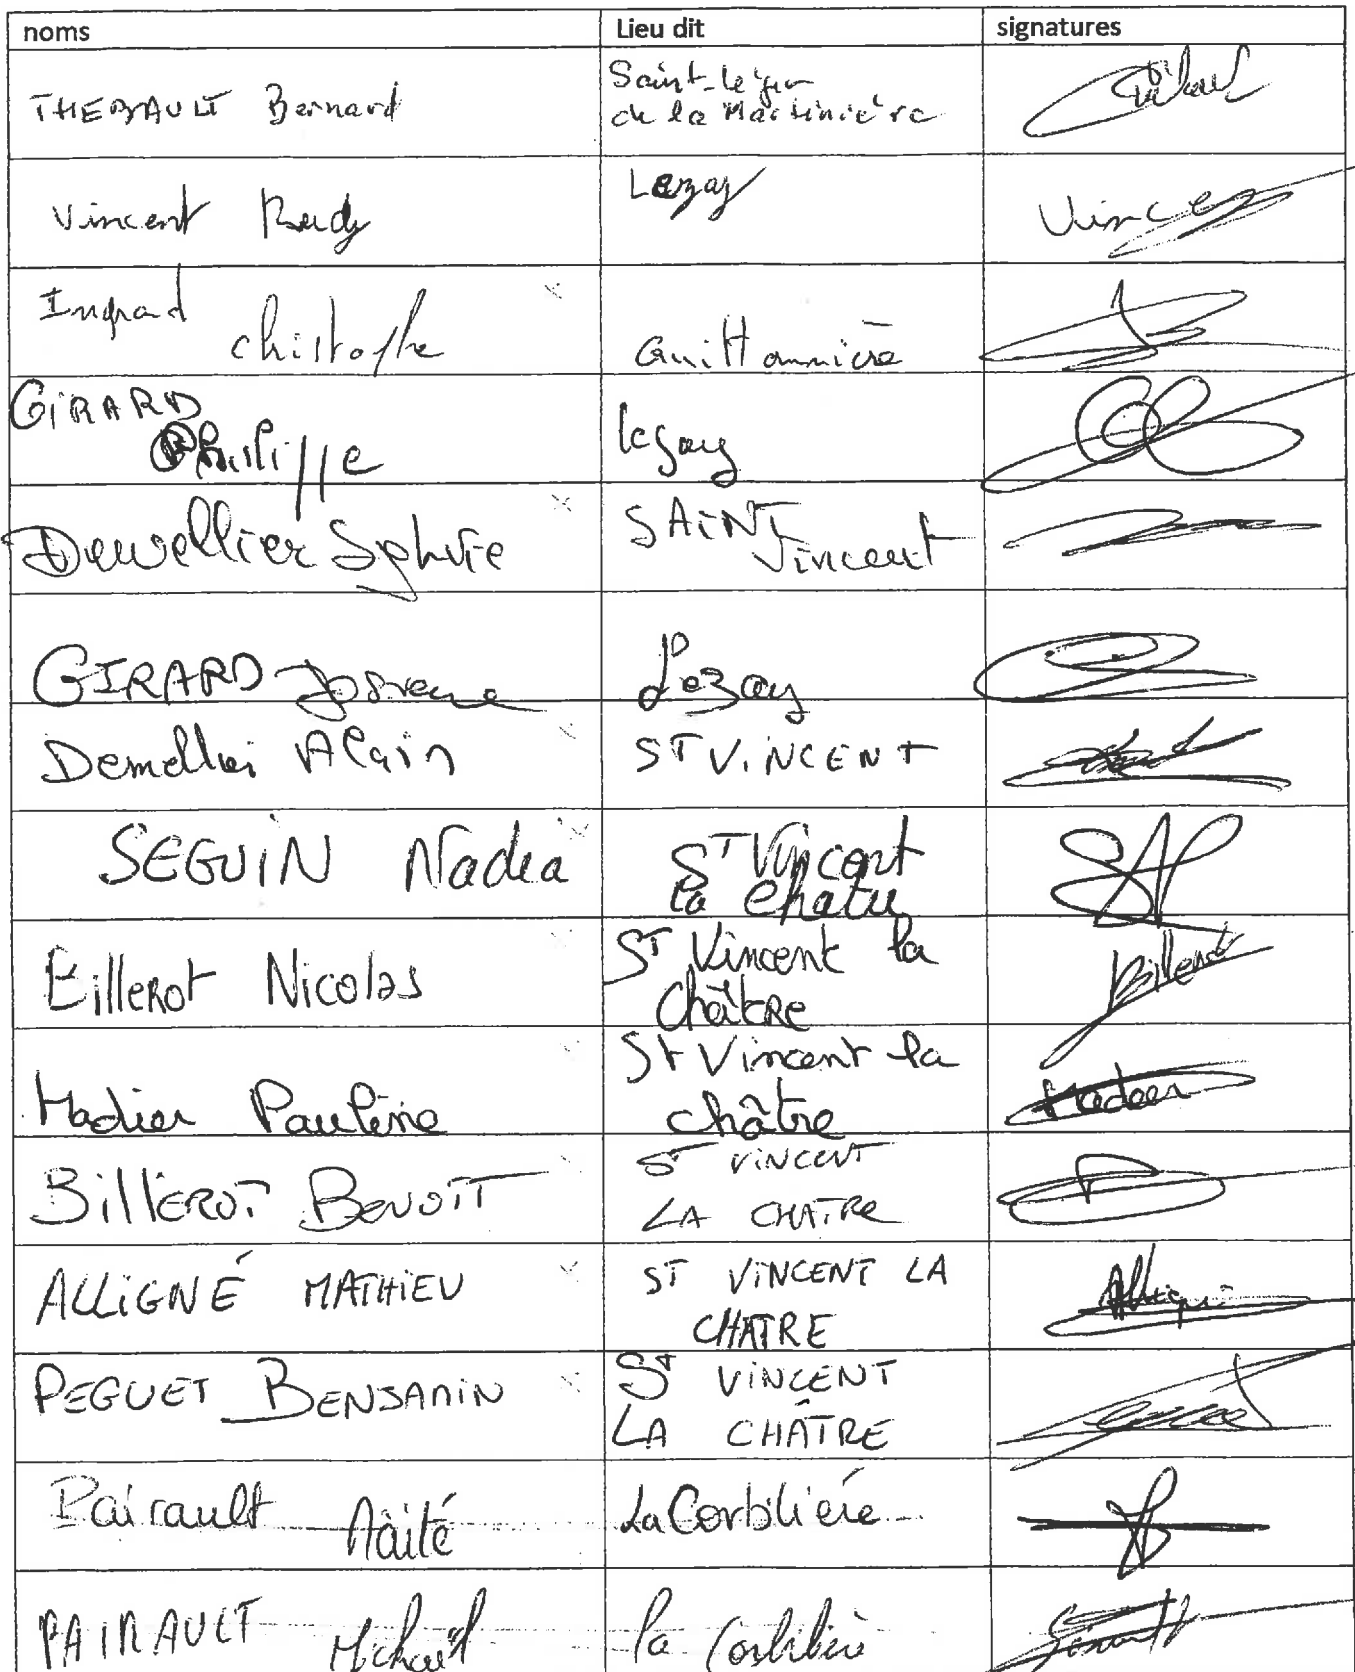 noms Lieu dit signatures
THEBAULT Bernard Saint-Léger
de la Martinière
Vincent Rudy Lezay Vincent
Ingrad
Christophe Guittonnière
GIRARD
Philippe Lezay
Sylvie SAINT
Vincent
GIRARD Lezay
Alain ST VINCENT
SEGUIN Nadia ST Vincent
la Chatre
Billerot Nicolas ST Vincent la
Châtre Billerot
Madier Pauline St Vincent la
châtre Madier
BillEROT BENOIT ST VINCENT
LA CHATRE
ALLIGNÉ MATHIEU ST VINCENT LA
CHATRE
PEGUET BENJAMIN ST VINCENT
LA CHÂTRE
Pairault Maité La Corbilière
PAIRAULT Michaël la Corbilière